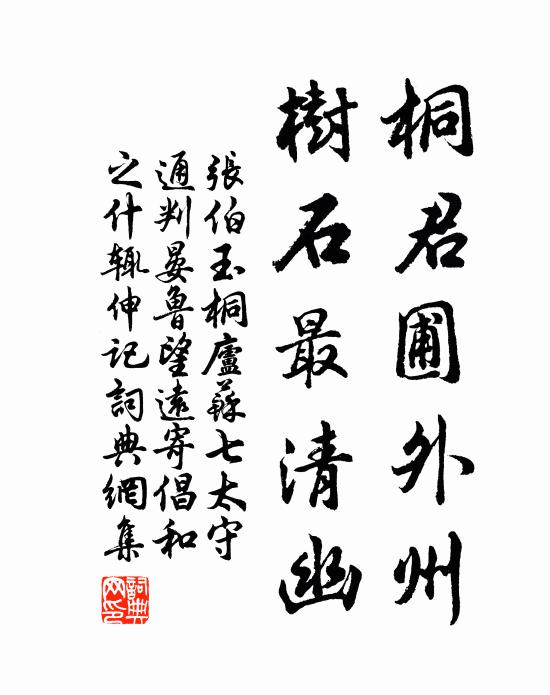 桐君圃外州
樹石最清幽
張伯玉桐廬蘇七太守
通判晏魯望遠寄倡和
之什輒伸记詞典網集
詞典
网印